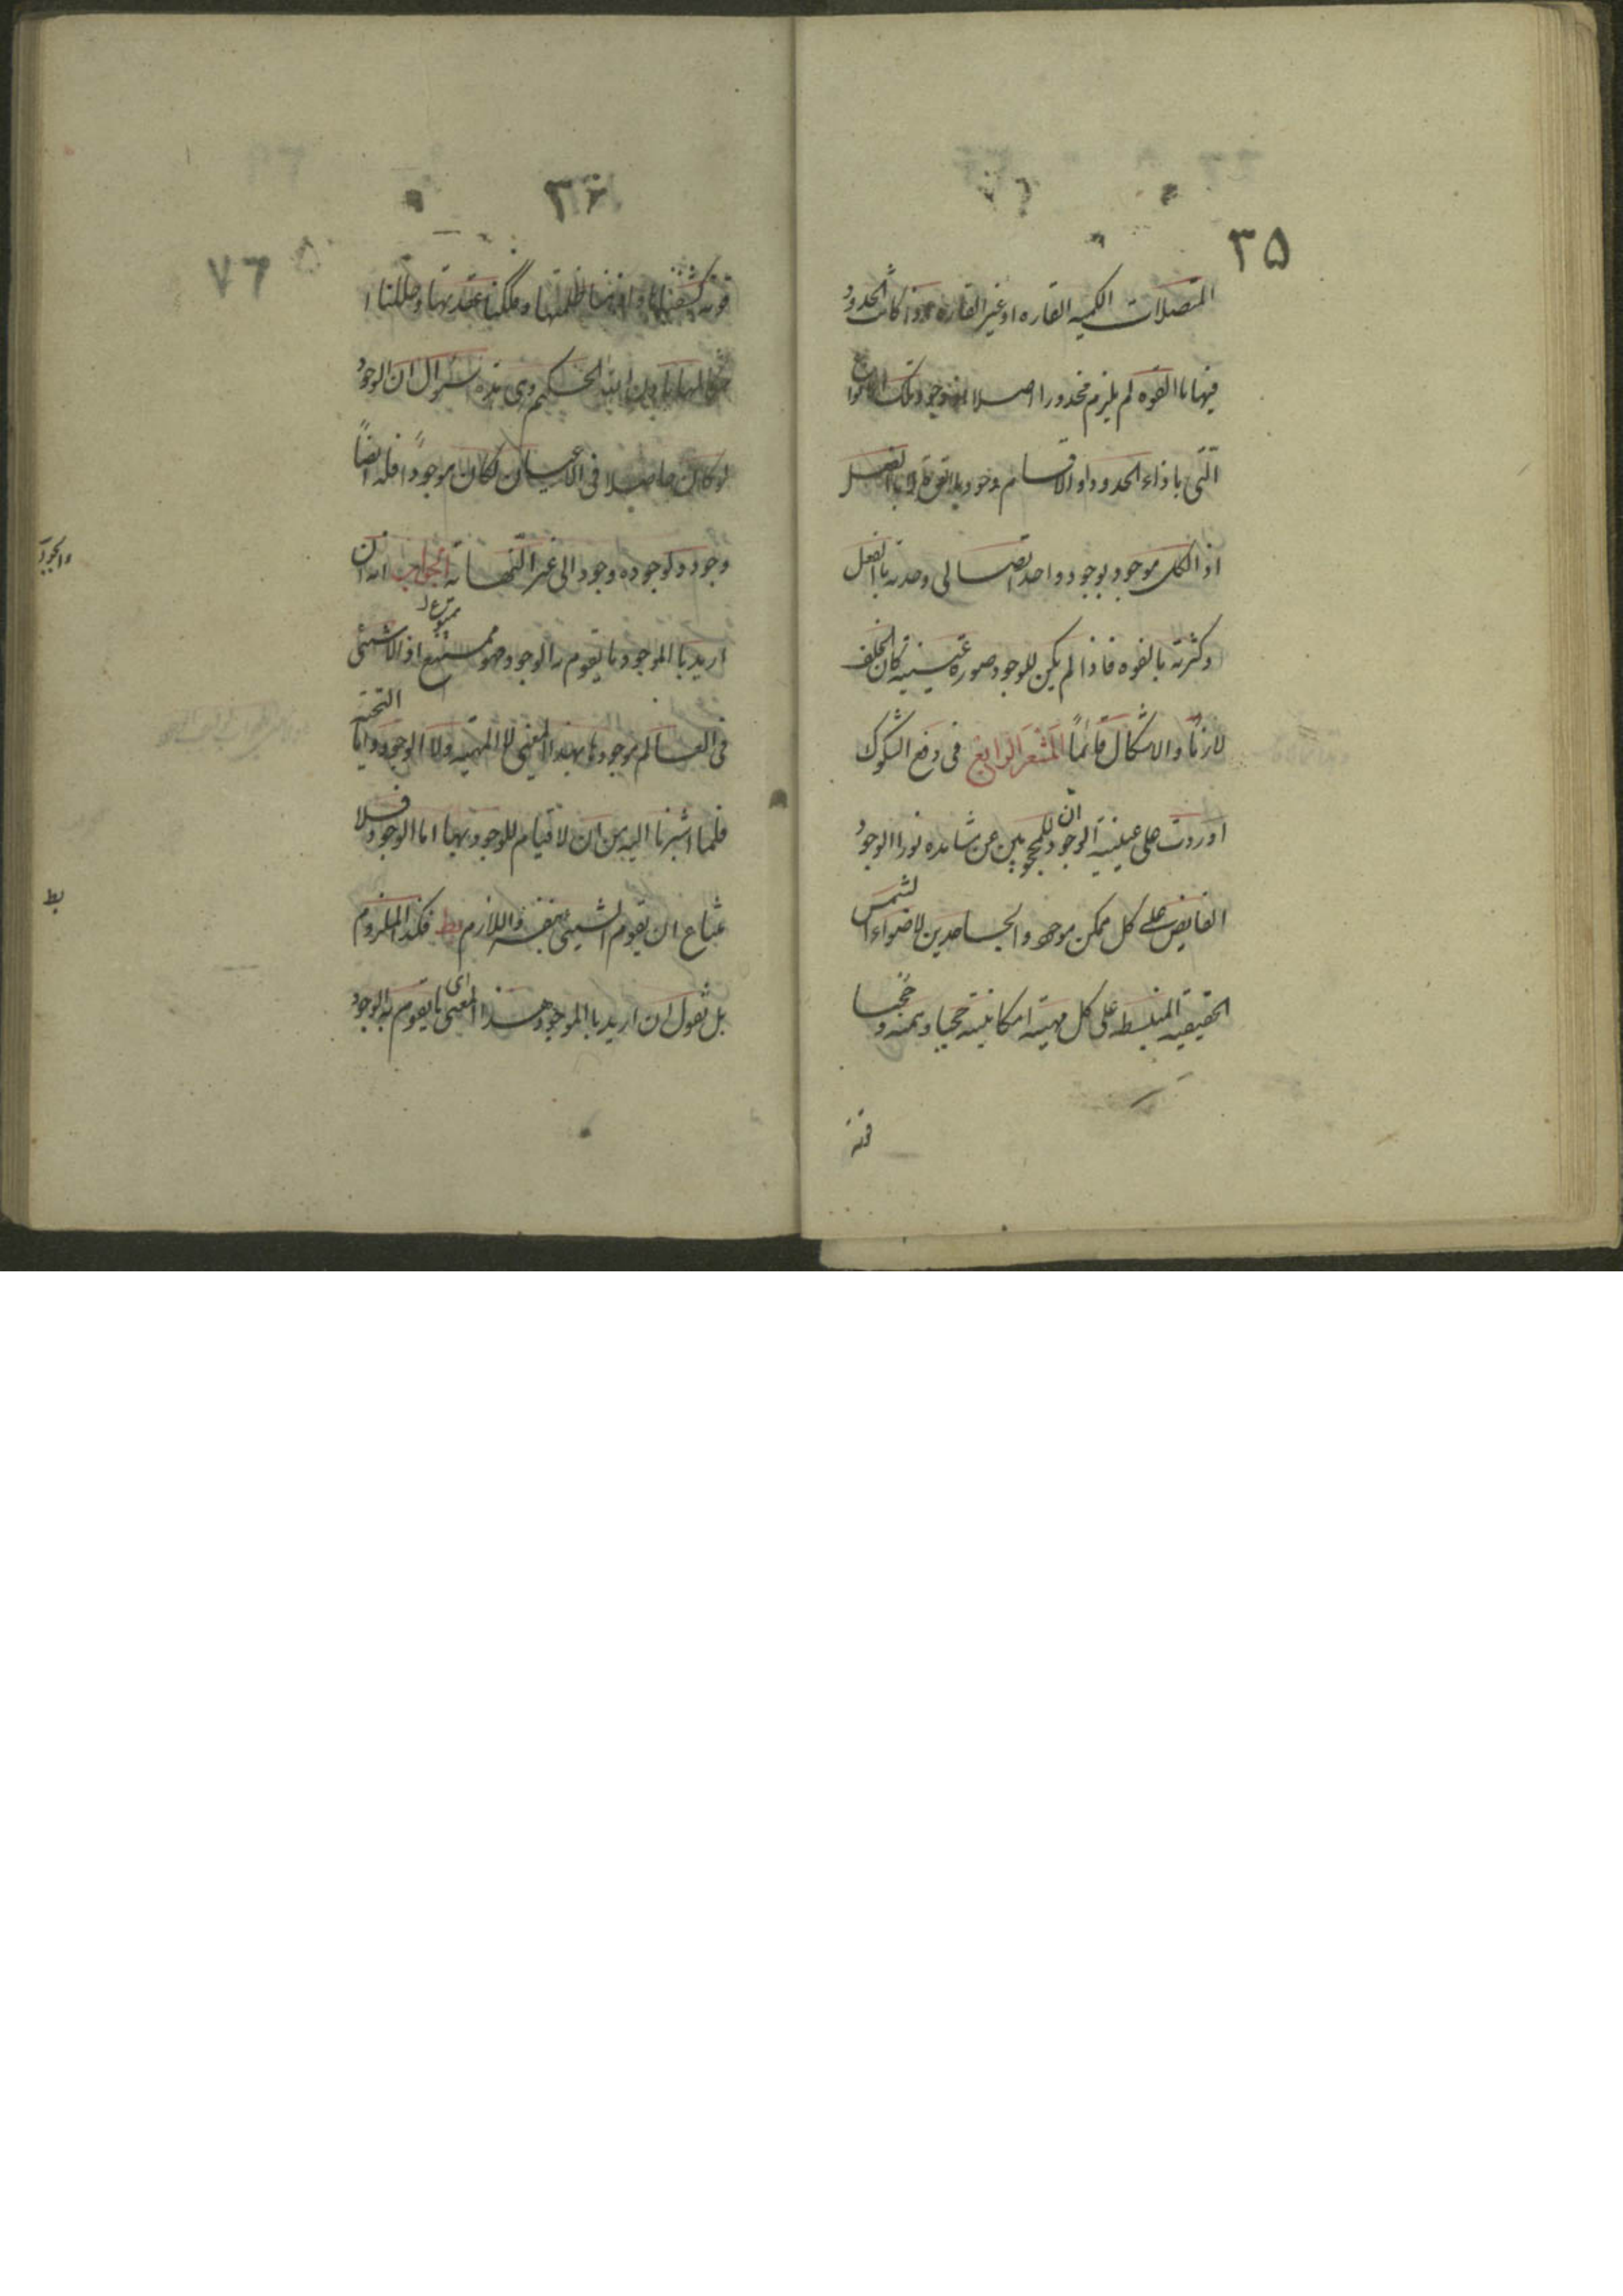 ٣٥
المتصلات الكميه القاره او غير القاره و اذا كانت الحدود
فيها باالقوه لم يلزم محذورا اصلا اذ وجود تلك الانواع
التى باذاء الحدود او الاقسام وجود بالقوة لا باالفعل
اذ الكل موجود بوجود واحد اتصالى وحدته باالفعل
وكثرته بالقوه فاذا لم يكن للوجود صورة عينيته كان الخلف
لازمًا والاشكال قائمًا المشعر الرابع فى دفع الشكوك
اوردت على عينية الوجود ان للمحجوبين عن مشاهده نور الوجود
الفايض على كل ممكن موجود والجاحدين لاضواء الشمس
الحقيقيه المنبسطه على كل مهيته امكانيته حجبا وهميه و حججا
قوته
٣٦
٧٦
قوته كشفناها و ازحنا ظلمتها و فككنا عقدتها و حللنا ا
شكالها باذن الله الحكيم وهى هذه سئوال ان الوجود
لوكان حاصلا فى الاعيان لكان موجودًا فله ايضًا
وجود ولوجوده وجود الى غير النهايه الجواب انه ان
اريد باالموجود ما يقوم به الوجود فهو ممتنع اذ لا شيئى
فى العالم موجودا بهذا المعنى لا المهيته ولا الوجود اما المهيته
فلما اشرنا اليه من ان لا قيام للوجود بها و اما الوجود فلا
متناع ان يقوم الشيئى بنفسه واللازم بط فكذا الملزوم
بل نقول ان اريد باالموجود هذا المعنى اى ما يقوم به الوجود
بط